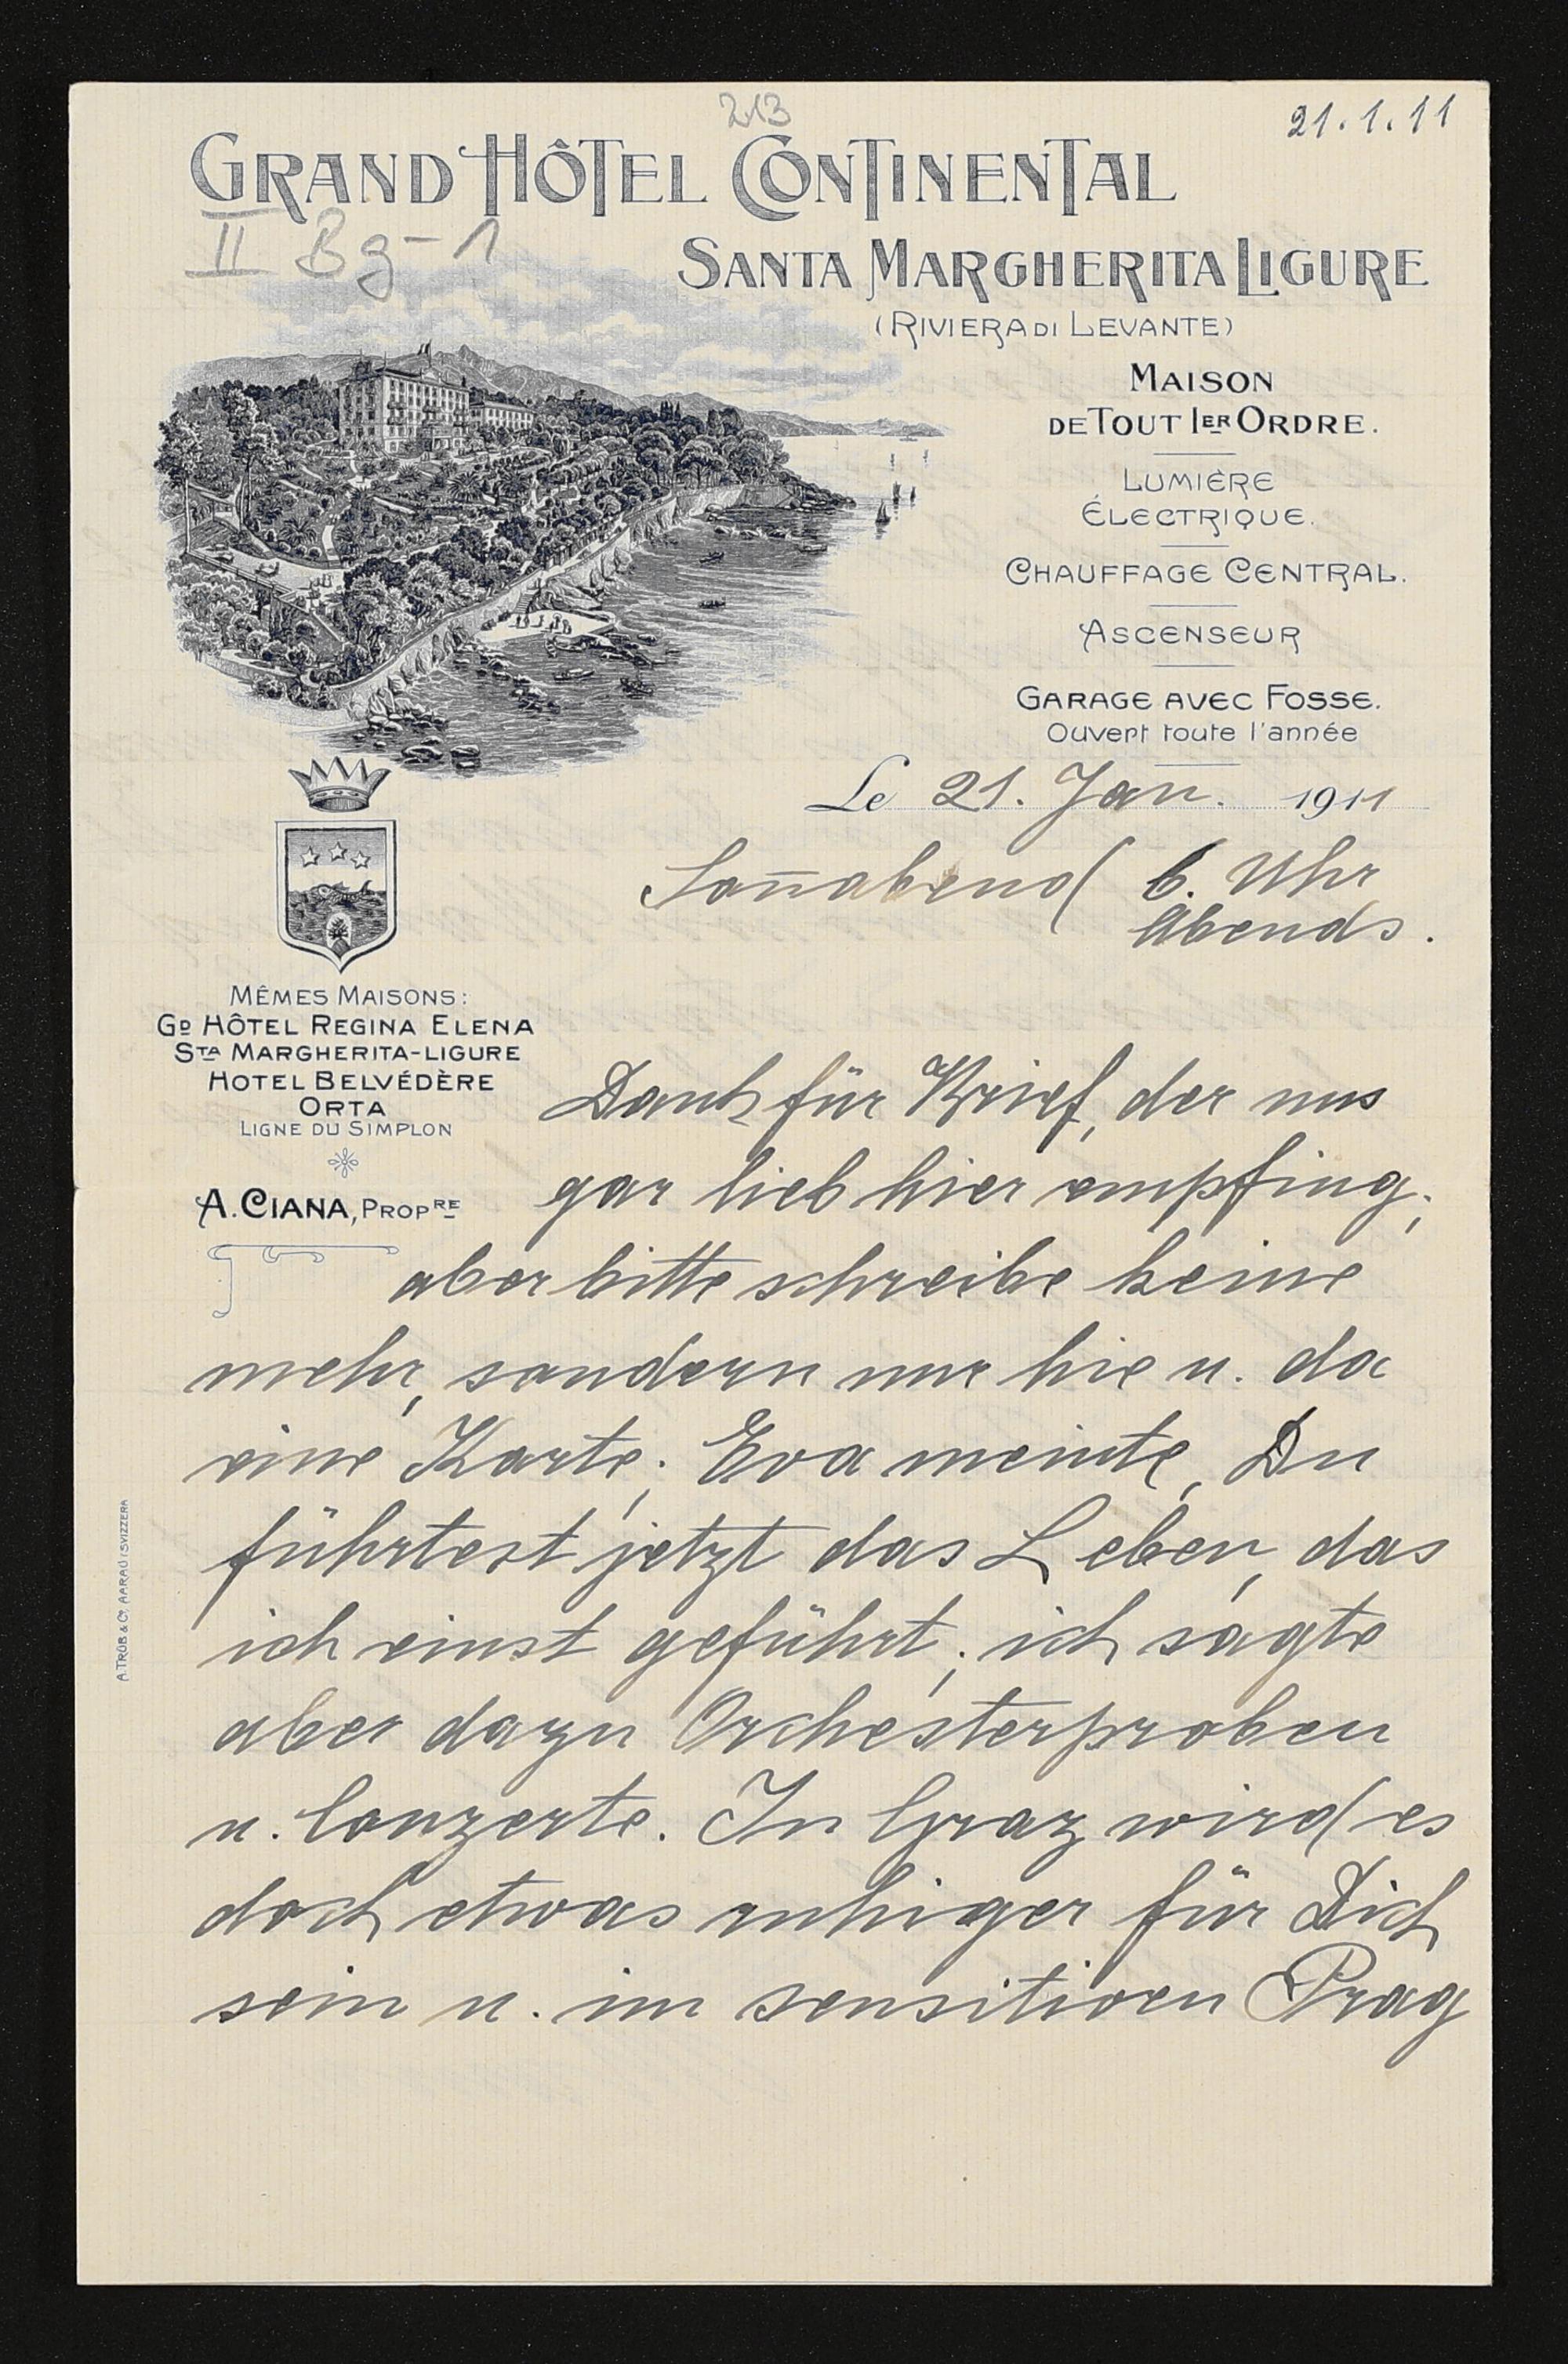 213
21.1.11
GRAND HÔTEL CONTINENTAL
II Bg-1
SANTA MARGHERITA LIGURE
(RIVIERA DI LEVANTE)
MAISON
DE TOUT IER ORDRE.
LUMIÈRE
ÉLECTRIQUE.
CHAUFFAGE CENTRAL.
ASCENSEUR
GARAGE AVEC FOSSE.
Ouvert toute l'année
Le 21. Jan. 1911
Soñabend 6. Uhr
Abends.
MÊMES MAISONS:
GD HÔTEL REGINA ELENA
STA MARGHERITA-LIGURE
HOTEL BELVÉDÈRE
ORTA
LIGNE DU SIMPLON
A. CIANA, PROPRE
Dank für Brief, der uns
gar lieb hier empfing;
aber bitte schreibe keine
mehr, sondern nur hie u. da
eine Karte; Eva meinte, Du
führtest jetzt das Leben, das
ich einst geführt; ich sagte
aber dazu Orchesterproben
u. Conzerte. In Graz wird es
doch etwas ruhiger für Dich
sein u. im sensitiven Prag
A. TRÜB & Cie AARAU (SVIZZERA